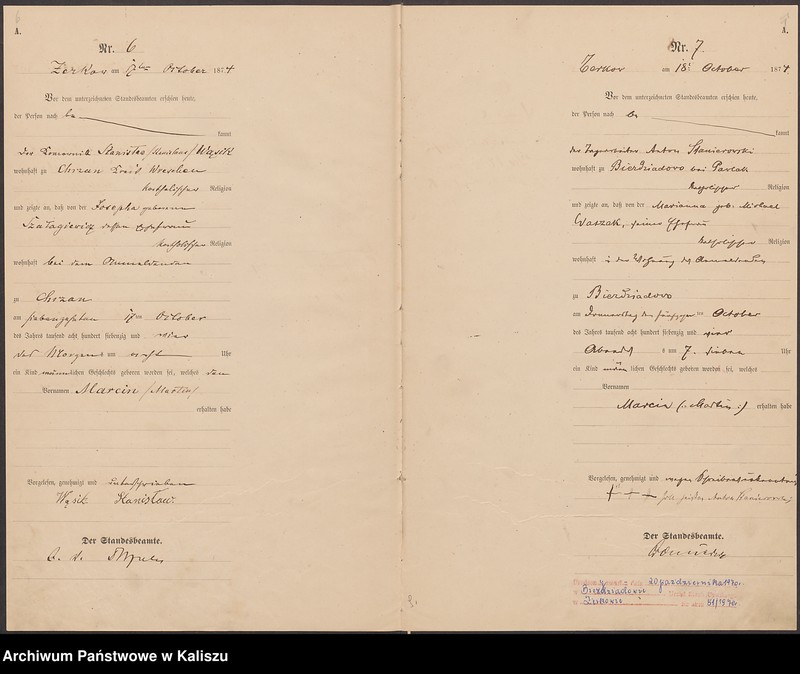 A.
Nr. 6
Zerkow am 17ten October 1874
Vor dem unterzeichneten Standesbeamten erschien heute,
der Person nach be
kannt
Stanislag /Stanislaus/ Wąsik
wohnhaft zu Chrzan Kreis Wreschen
katholischer Religion
und zeigte an, daß von der Josepha geborenen
Szalagiewicz dessen Ehefrau
katholischer Religion
wohnhaft bei dem Anmeldenden
zu Chrzan
am siebenzehnten 17ten October
des Jahres tausend acht hundert siebenzig und vier
des Morgens um Uhr
ein Kind männlichen Geschlechts geboren worden sei, welches den
Vornamen Marcin /Martin/
erhalten habe
Vorgelesen, genehmigt und unterschrieben
Wąsik Stanisław
Der Standesbeamte.
A.
Nr. 7.
Zerkow am 18t October 1874
Vor dem unterzeichneten Standesbeamten erschien heute,
der Person nach be
kannt
der Anton Stanierowski
wohnhaft zu Bierdziadowo bei Pawlak
katholischer Religion
und zeigte an, daß von der Marianna geb. Michael
Waszak, seiner Ehefrau
katholischer Religion
wohnhaft in der Wohnung des Anmeldenden
zu Bierdziadowo
am Donnerstag den October
des Jahres tausend acht hundert siebenzig und vier
Abends um 7. sieben Uhr
ein Kind männlichen Geschlechts geboren worden sei, welches
Vornamen
Marcin (: Martin :) erhalten habe
Vorgelesen, genehmigt und wegen
+ + + Anton Stanierowski
Der Standesbeamte.
20 października 1970r.
Bieździadowie
Żerkowie 51/1970
Archiwum Państwowe w Kaliszu